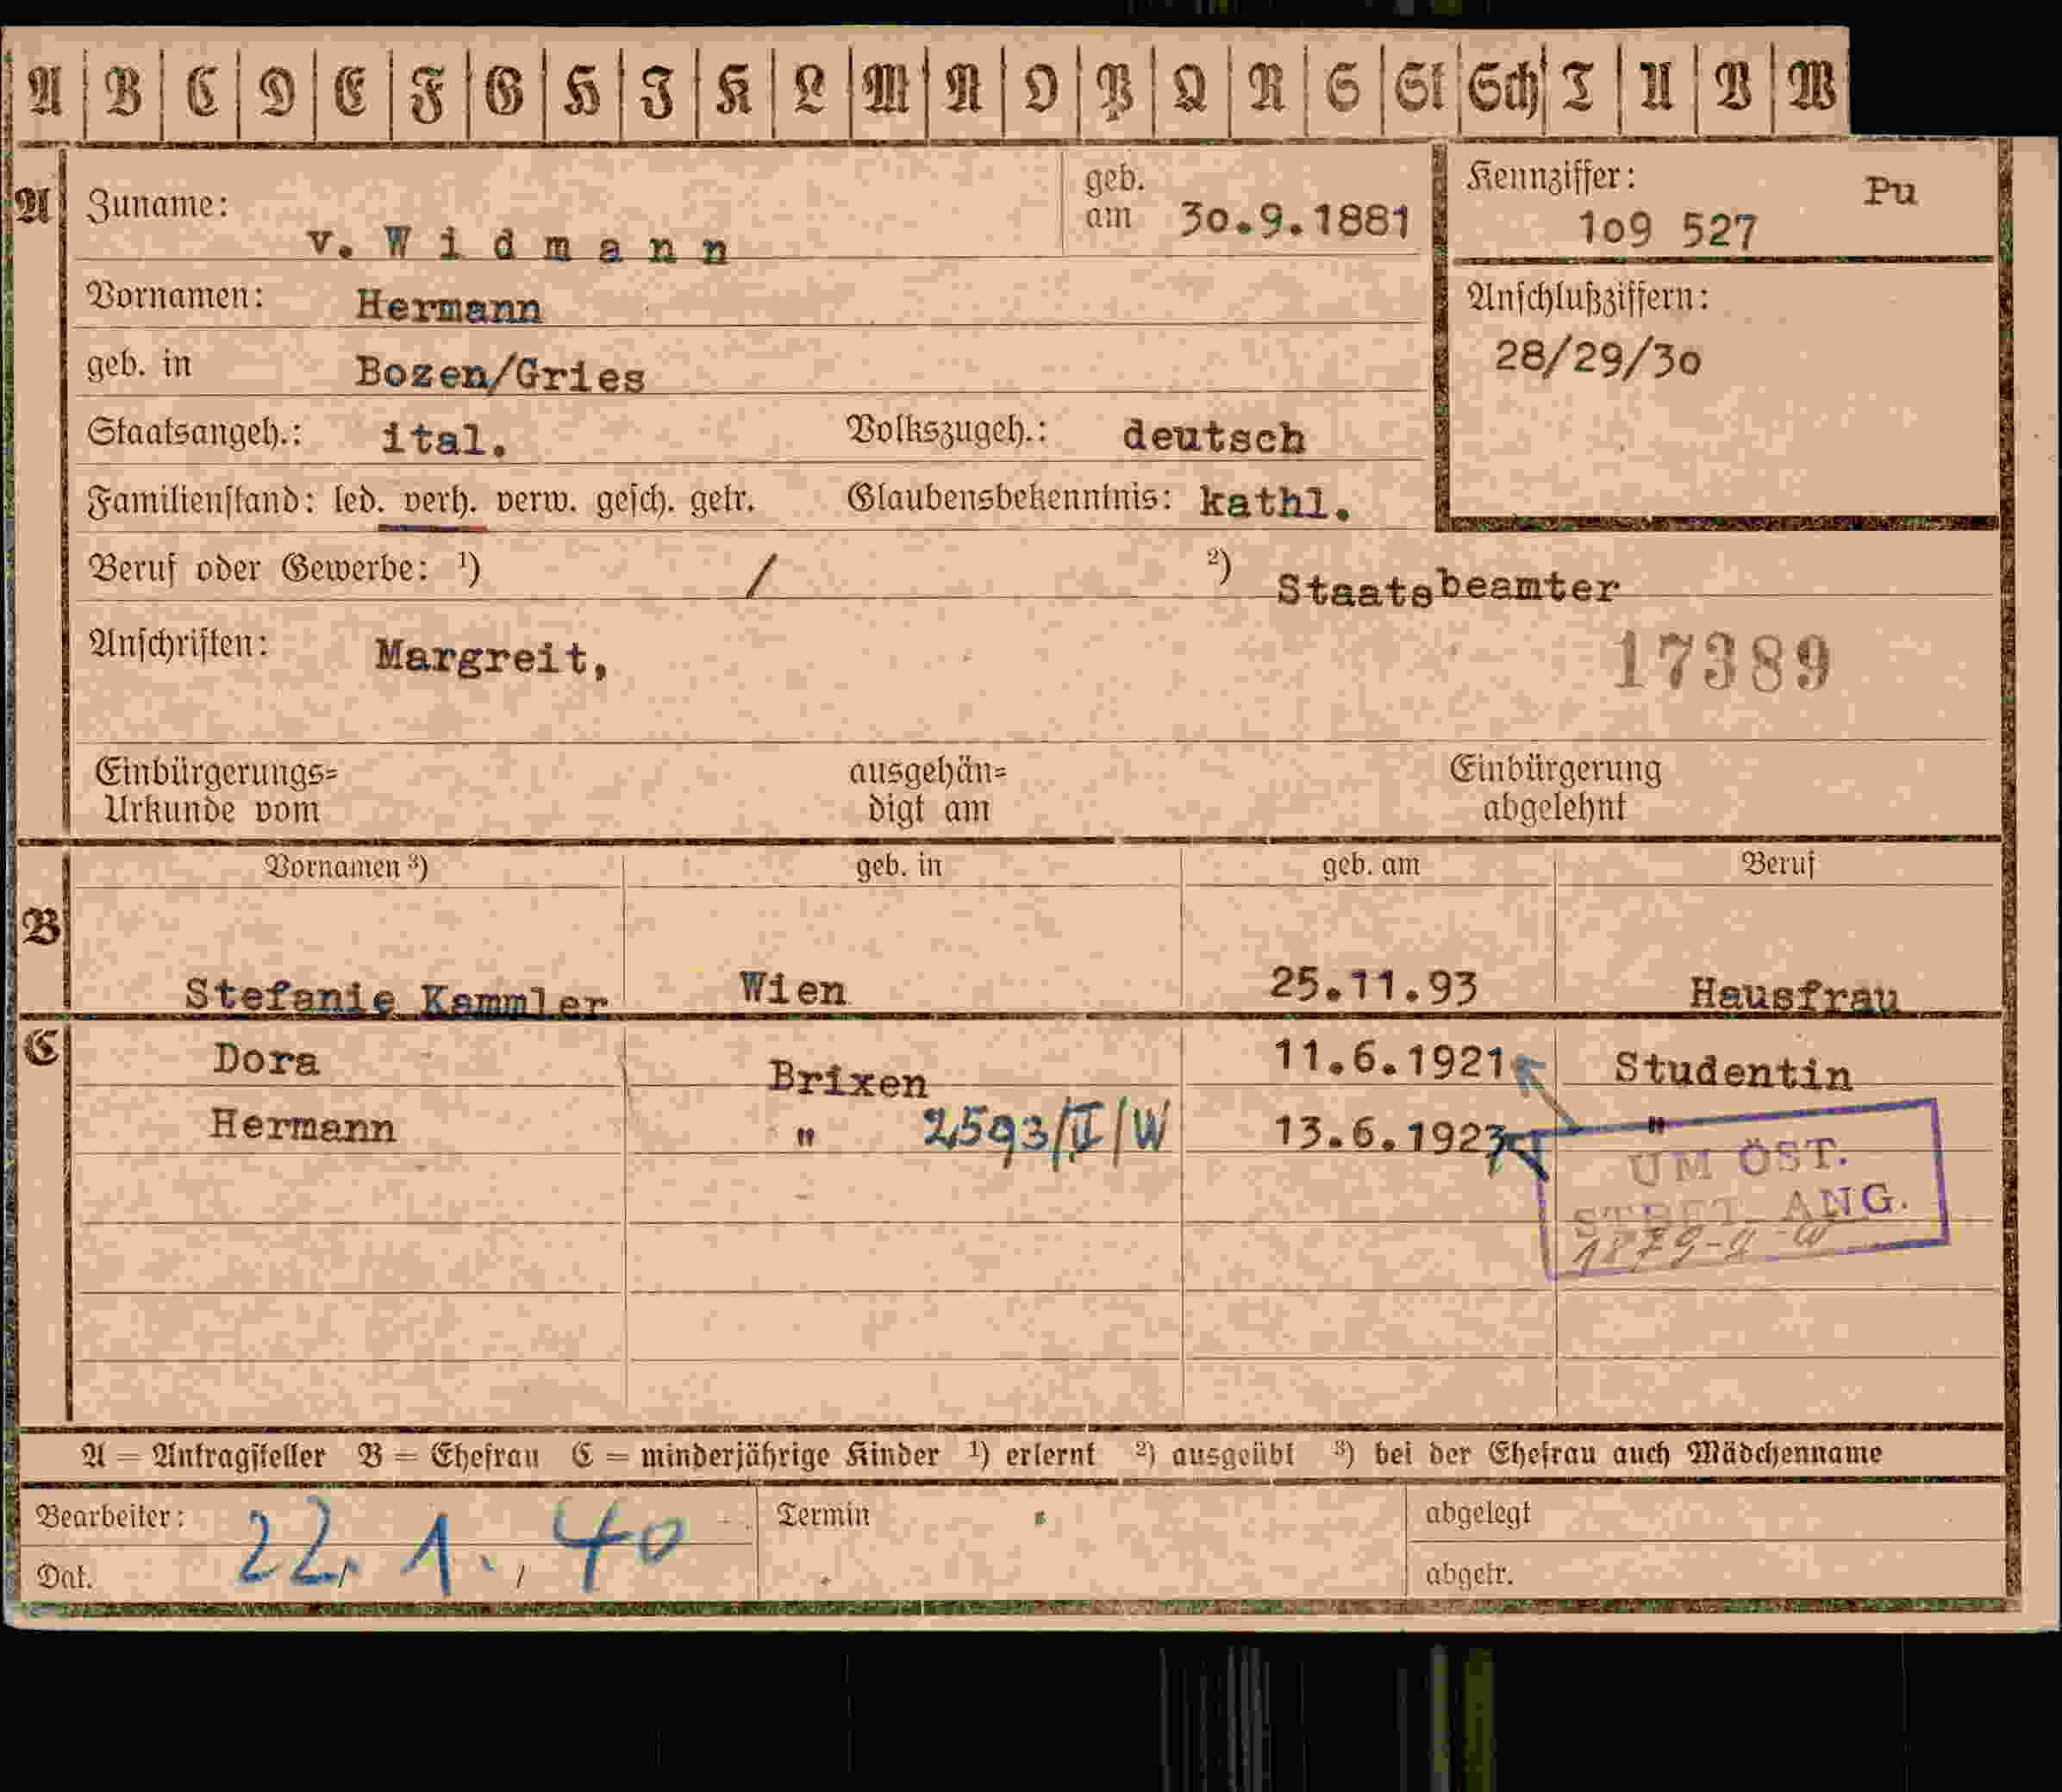 A B C D E F G H I K L M N O P Q R S St Sch T U V W
A Zuname: v. W i d m a n n geb. am 30.9.1881 Kennziffer: Pu
109 527
Vornamen: Hermann Anschlußziffern:
geb. in Bozen/Gries 28/29/30
Staatsangeh.: ital. Volkszugeh.: deutsch
Familienstand: led. verh. verw. gesch. getr. Glaubensbekenntnis: kathl.
Beruf oder Gewerbe: ¹) / ²) Staatsbeamter
Anschriften: Margreit, 17389
Einbürgerungs= ausgehän= Einbürgerung
Urkunde vom digt am abgelehnt
Vornamen ³) geb. in geb. am Beruf
B
Stefanie Kammler Wien 25.11.93 Hausfrau
C Dora Brixen 11.6.1921 Studentin
Hermann " 2593/II/W 13.6.1923 "
UM ÖST.
ANG.
A = Antragsteller B = Ehefrau C = minderjährige Kinder ¹) erlernt ²) ausgeübt ³) bei der Ehefrau auch Mädchenname
Bearbeiter: Termin abgelegt
22. 1. 40
Dat. abgetr.